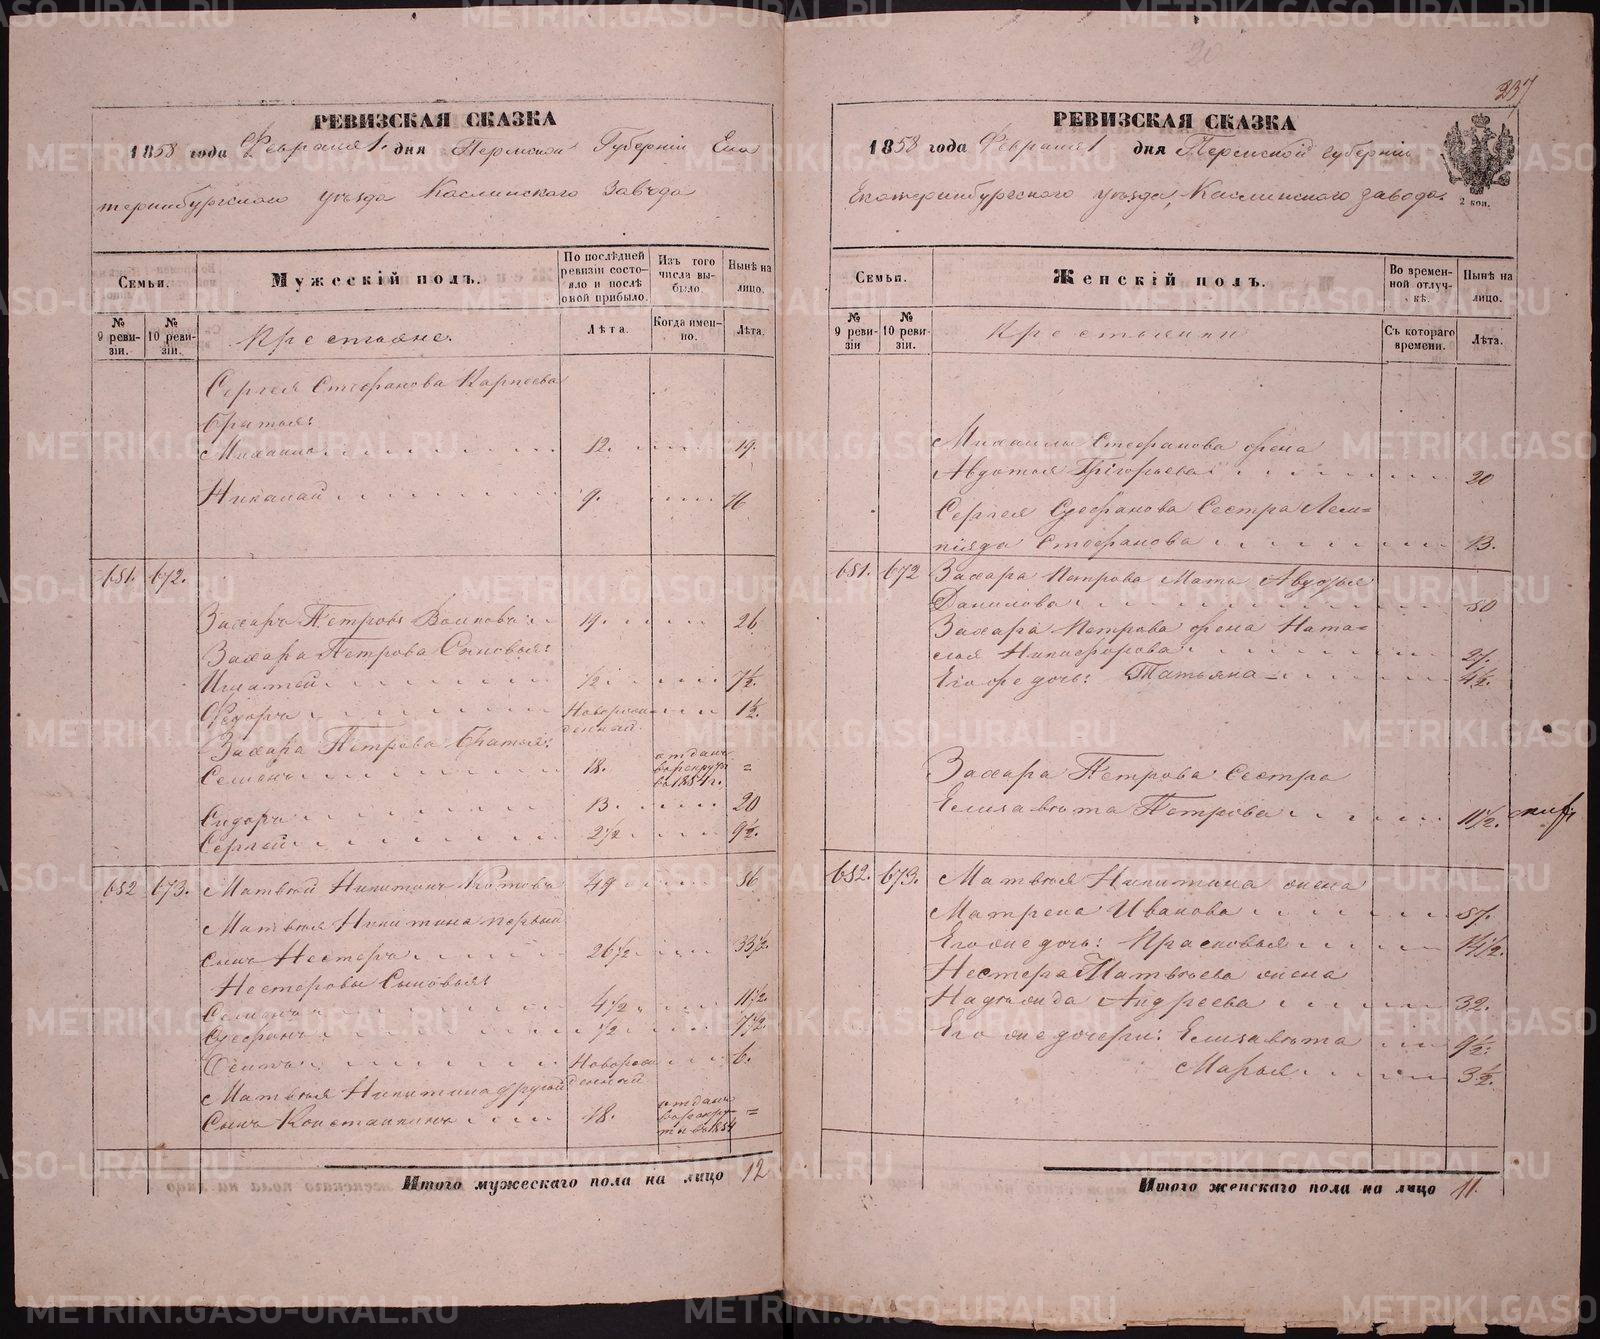 РЕВИЗСКАЯ СКАЗКА
1858 года Февраля 1. дня Пермской Губерніи Ека
теринбургскаго уѣзда Каслинскаго Завода
Семьи.
Мужескій полъ.
По послѣдней ревизіи состояло и послѣ оной прибыло.
Изъ того числа выбыло.
Нынѣ на лицо.
№ 9 ревизіи.
№ 10 ревизіи.
Крестьяне.
Лѣта.
Когда именно.
Лѣта.
Сергея Стефанова Карпеева
братья:
Михаилъ 12. 19.
Николай 9. 16
651. 672.
Захаръ Петровъ Волковъ 19. 26
Захара Петрова Сыновья:
Игнатей 1/2 7 1/2.
Федоръ Новорожденный 1 1/2.
Захара Петрова братья:
Семенъ 18. отданъ в рекруты в 1854 г. =
Сидоръ 13. 20
Сергей 2 1/2 9 1/2.
652 673. Матвей Никитинъ 49 56
Матвея Никитина первый
сынъ Нестеръ 26 1/2 33 1/2.
Нестеровы Сыновья:
Семенъ 4 1/2 11 1/2.
Стефанъ 1/2 7 1/2.
Осипъ Новорожденный 6.
Матвея Никитина другой
Сынъ Константинъ 18. отданъ в рекруты в 1854 =
Итого мужескаго пола на лицо 12
237
РЕВИЗСКАЯ СКАЗКА
1858 года Февраля 1 дня Пермской губерніи
Екатеринбургскаго уѣзда, Каслинскаго завода.
2 коп.
Семьи.
Женскій полъ.
Во временной отлучкѣ.
Нынѣ на лицо.
№ 9 ревизіи
№ 10 ревизіи.
Крестьянки
Съ котораго времени.
Лѣта.
Михаилы Стефанова жена
Авдотья Григорьева 20
Сергея Стефанова Сестра Лемпіяда Стефанова 13.
651. 672 Захара Петрова Мать Авдотья
Данилова 50
Захара Петрова жена Наталья Никифорова 27.
Его же дочь: Татьяна 4 1/2.
Захара Петрова Сестра
Елизавета Петрова 11 1/2.
652. 673. Матвея Никитина жена
Матрена Иванова 57.
Его же дочь: Прасковья 14 1/2.
Нестера Матвеева жена
Надежда Андреева 32.
Его же дочери: Елизавета 9 1/2.
Марья 3 1/2.
Итого женскаго пола на лицо 11.
METRIKI.GASO-URAL.RU